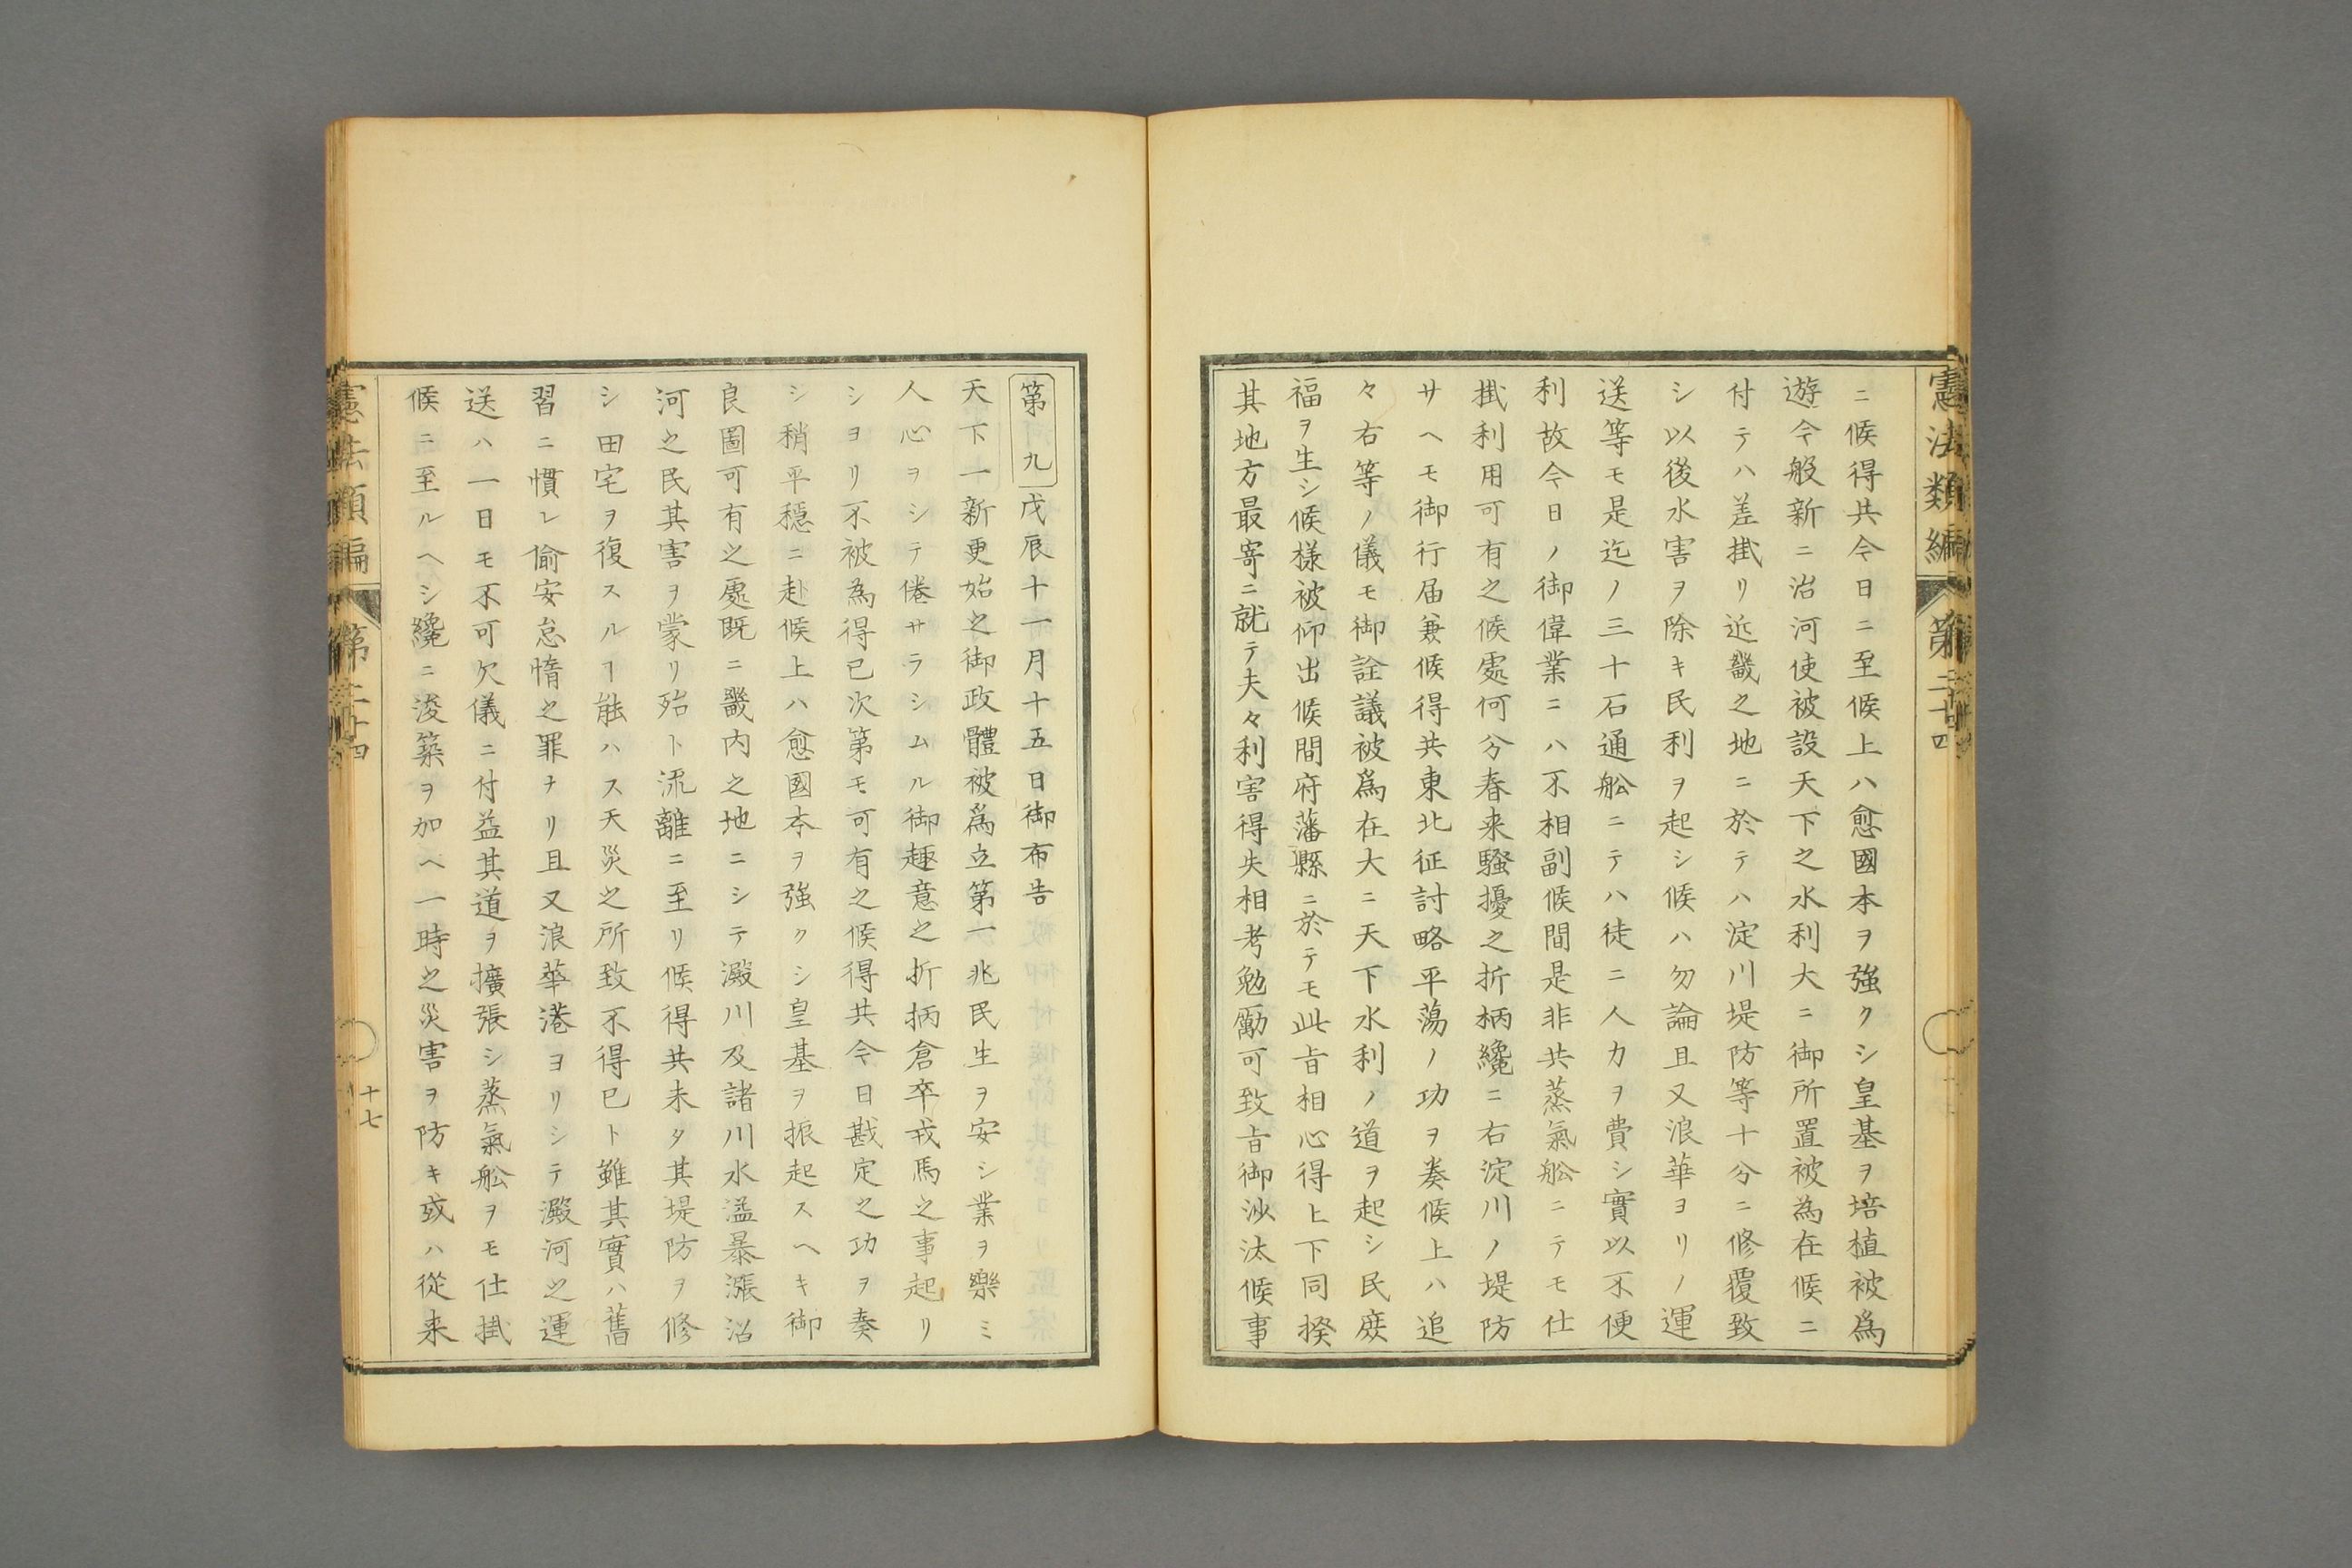 憲法類編 第二十四
ニ候得共今日ニ至候上ハ愈國本ヲ強クシ皇基ヲ培植被爲
遊今般新ニ治河使被設天下之水利大ニ御所置被為在候ニ
付テハ差掛リ近畿之地ニ於テハ淀川堤防等十分ニ修覆致
シ以後水害ヲ除キ民利ヲ起シ候ハ勿論且又浪華ヨリノ運
送等モ是迄ノ三十石通舩ニテハ徒ニ人力ヲ費シ實以不便
利故今日ノ御偉業ニハ不相副候間是非共蒸氣舩ニテモ仕
掛利用可有之候處何分春来騷擾之折柄纔ニ右淀川ノ堤防
サヘモ御行届兼候得共東北征討略平蕩ノ功ヲ奏候上ハ追
々右等ノ儀モ御詮議被爲在大ニ天下水利ノ道ヲ起シ民庶
福ヲ生シ候様被仰出候間府藩縣ニ於テモ此旨相心得上下同揆
其地方最寄ニ就テ夫々利害得失相考勉勵可致旨御沙汰候事
第九 戊辰十一月十五日御布告
天下一新更始之御政體被爲立第一兆民生ヲ安シ業ヲ樂ミ
人心ヲシテ倦サラシムル御趣意之折柄倉卒戎馬之事起リ
シヨリ不被為得已次第モ可有之候得共今日戡定之功ヲ奏
シ稍平穏ニ赴候上ハ愈國本ヲ強クシ皇基ヲ振起スヘキ御
良圖可有之處既ニ畿内之地ニシテ澱川及諸川水溢暴漲沿
河之民其害ヲ蒙リ殆ト流離ニ至リ候得共未タ其堤防ヲ修
シ田宅ヲ復スルヿ能ハス天災之所致不得已ト雖其實ハ舊
習ニ慣レ偷安怠惰之罪ナリ且又浪華港ヨリシテ澱河之運
送ハ一日モ不可欠儀ニ付益其道ヲ擴張シ蒸氣舩ヲモ仕掛
候ニ至ルヘシ纔ニ浚築ヲ加ヘ一時之災害ヲ防キ或ハ從来
憲法類編 第二十四 十七